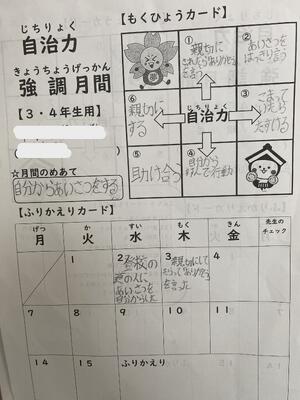 じちりょく
自治力
きょうちょうげっかん
強調月間
【3・4年生用】
☆月間のめあて
自分からあいさつをする
【もくひょうカード】
①
親切に
されたら「ありがとう」
を言う
②
あいさつを
はっきり言う
⑥
親切に
する
じちりょく
自治力
③
こまって
いたら
たすける
⑤
助け合う
④
自分から
行動
【ふりかえりカード】
げつ
月
か
火
すい
水
もく
木
きん
金
先生の
チェック
1
2
登校の
時の人に
あいさつを
自分からした
3
親切にして
もらって「ありがとう」
を言った
4
7
8
9
10
11
14
15
ふりかえり